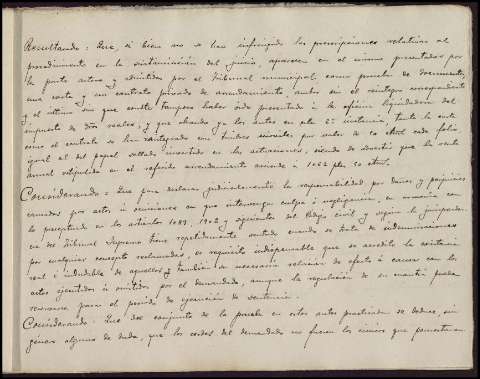 Resultando: Que, si bien no se han infringido las prescripciones relativas al
procedimiento en la sustanciación del juicio, aparecen en el mismo presentados por
la parte actora y admitidos por el Tribunal municipal como prueba de documentos,
una carta y un contrato privado de arrendamiento, ambos sin el reintegro correspondiente
y el último sin que conste tampoco haber sido presentado a la oficina liquidadora del
impuesto de dros reales, y que elevados ya los autos en esta 2ª instancia, tanto la carta
como el contrato se han reintegrado con timbres móviles por valor de 10 ctmos cada folio
igual al del papel sellado invertido en las actuaciones, siendo de advertir que la renta
anual estipulada en el referido arrendamiento asciende a 1062 ptas 50 ctms.
Considerando: Que para declarar judicialmente la responsabilidad por daños y perjuicios
causados por actos u omisiones en que intervenga culpa o negligencia, en armonía con
lo preceptuado en los artículos 1089, 1902 y siguientes del Código civil y según la jurispruden-
cia del Tribunal Supremo tiene repetidamente sentado cuando se trata de indemnizaciones
por cualquier concepto reclamadas, es requisito indispensable que se acredite la existencia
real e indudable de aquellos y también la necesaria relación de efecto a causa con los
actos ejecutados u omitidos por el demandado, aunque la regulación de su cuantía pueda
reservarse para el período de ejecución de sentencia.
Considerando: Que del conjunto de la prueba en estos autos practicada se deduce, sin
género alguno de duda, que los cerdos del demandado no fueron los únicos que penetraron